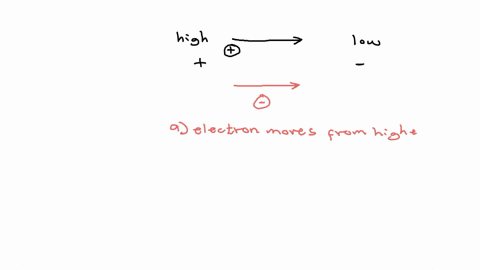 high + low
+ -
-
a) electron moves from highe